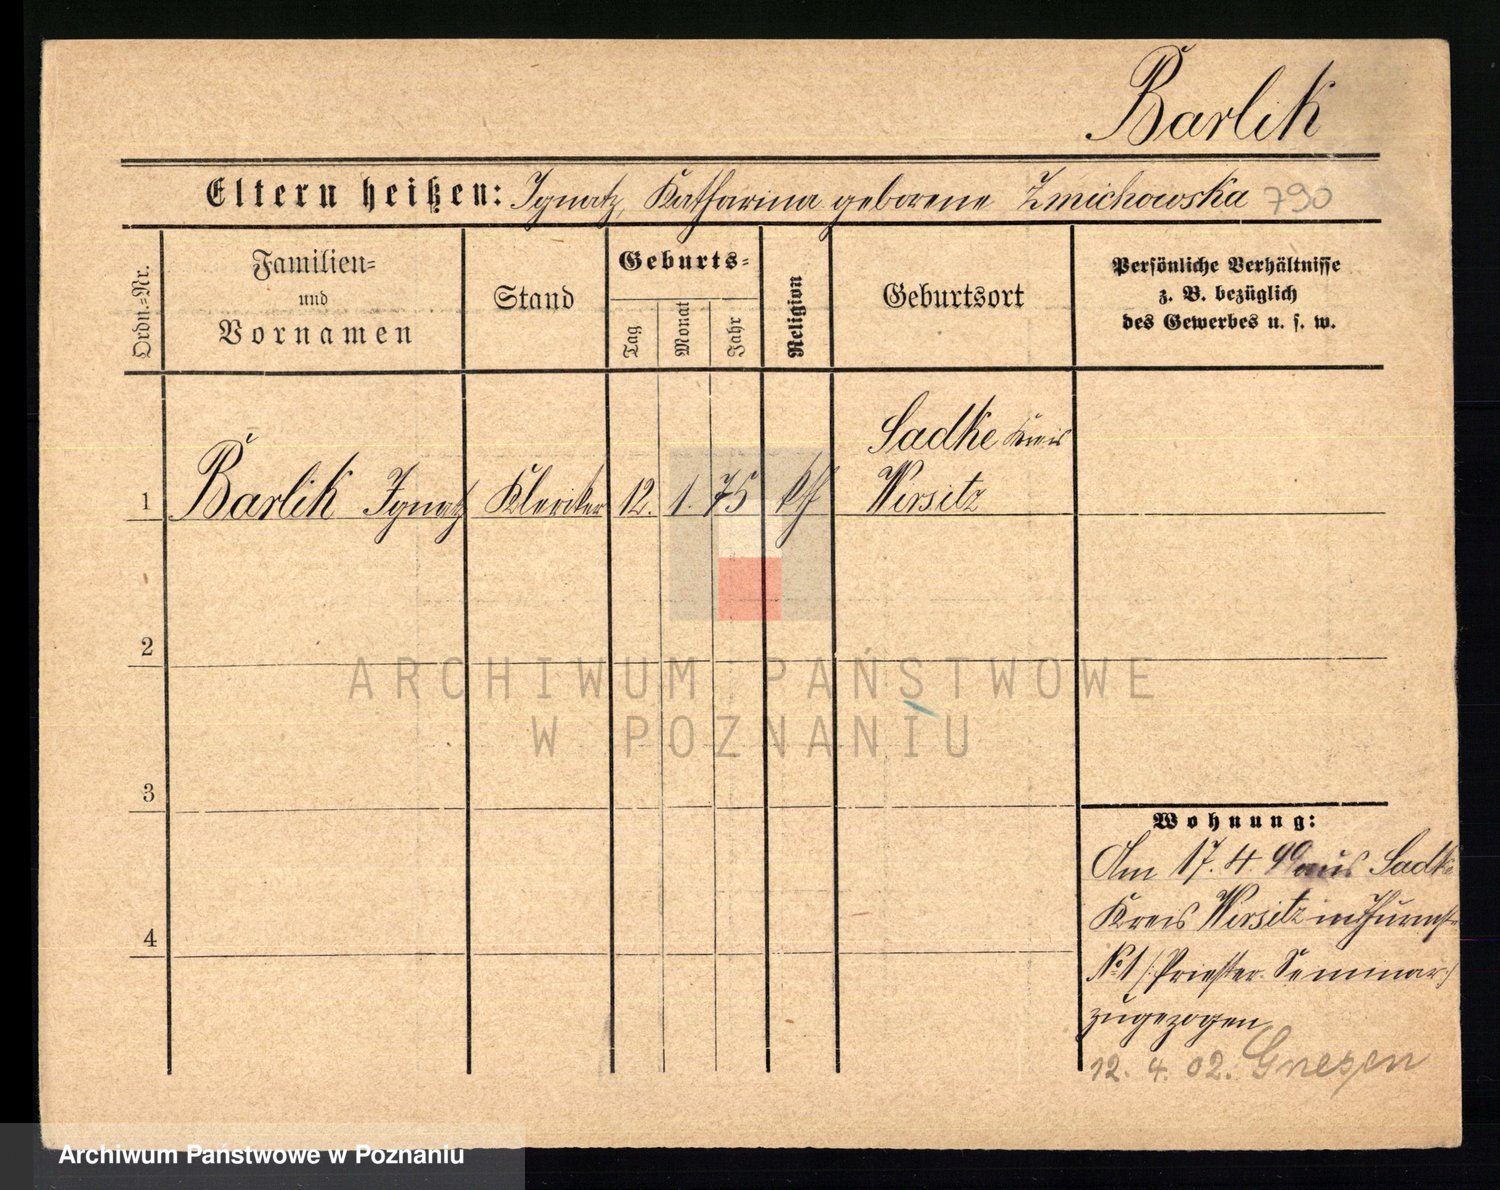 Barlik
Eltern heißen: Ignatz, Katharina geborene Zmichowska 790
Ordn.=Nr.
Familien=
und
Vornamen
Stand
Geburts=
Tag
Monat
Jahr
Religion
Geburtsort
Persönliche Verhältnisse
z. B. bezüglich
des Gewerbes u. s. w.
Sadke Kreis
1 Barlik Ignatz Kleriker 12. 1. 75 kth Wirsitz
2
ARCHIWUM PAŃSTWOWE
W POZNANIU
3
Wohnung:
Am 17. 4. aus Sadke
Kreis Wirsitz in Thurmstr
No 1 /: Priester-Seminar :/
4
zugezogen
12. 4. 02. Gnesen
Archiwum Państwowe w Poznaniu